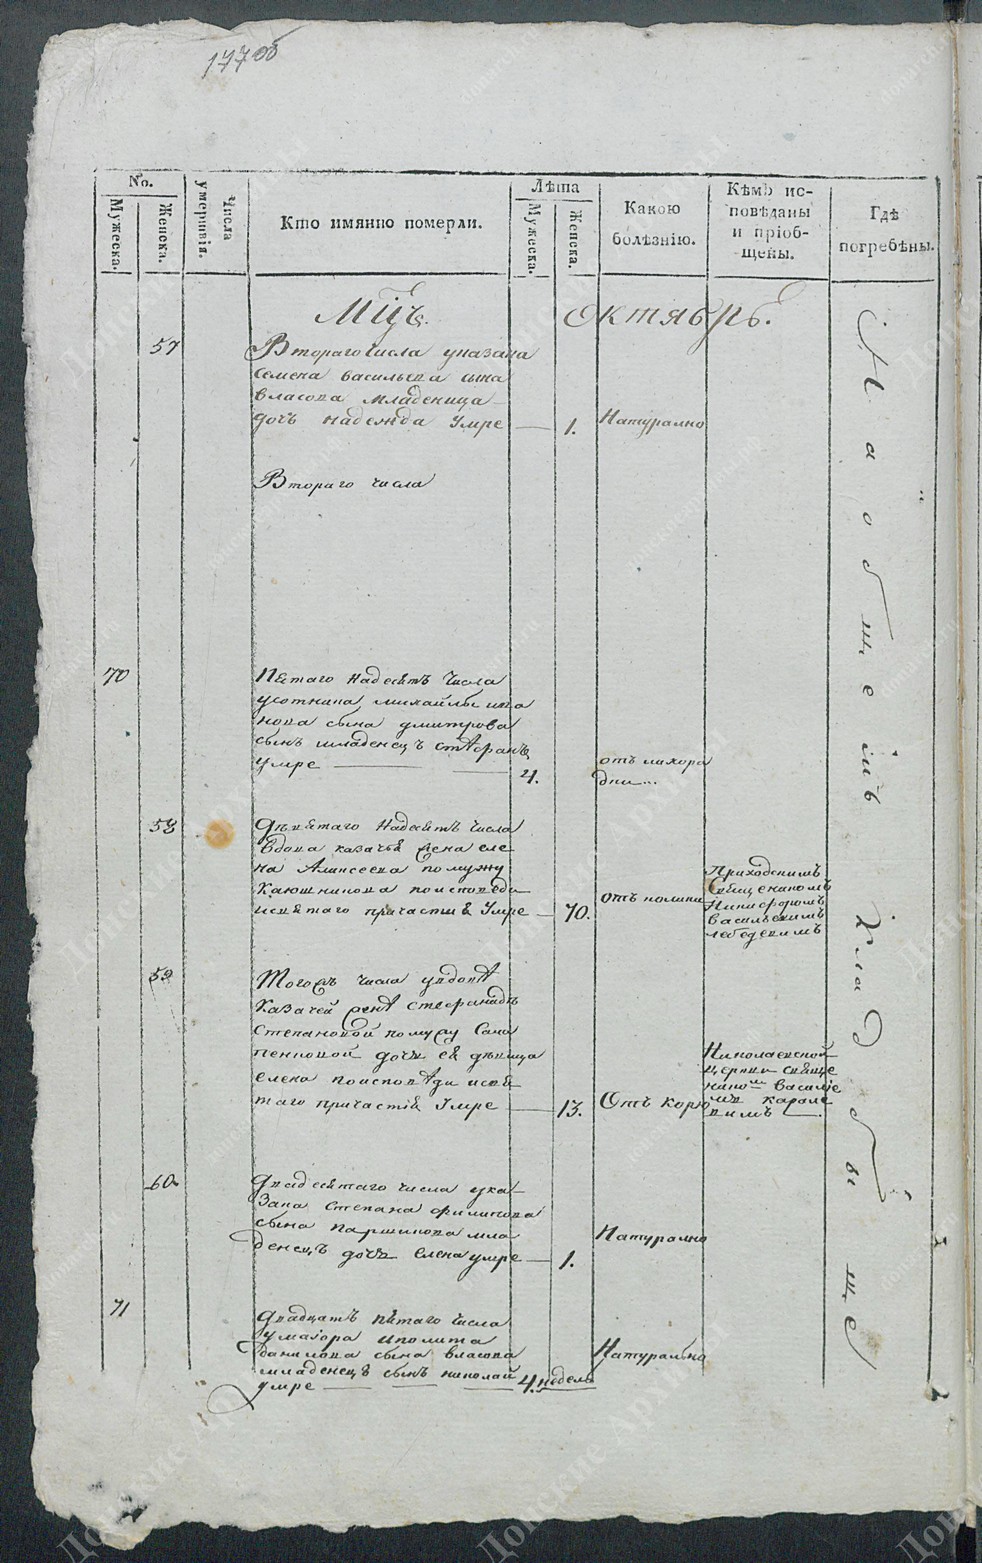 177об
No.
Мужеска.
Женска.
Числа умершія.
Кто имянно померли.
Лѣта
Мужеска.
Женска.
Какою
болѣзнію.
Кѣмъ ис-
повѣданы
и пріоб-
щены.
Гдѣ
погребѣны.
Мцъ. Октябрь.
57
Втораго числа указана
семена васильева сына
власова младеница
дочь надежда умре — 1. Натурално
Втораго числа
70
Пятаго надесять числа
усотника михайлы ива
нова сына дмитрова
сынъ младенецъ стефанъ
умре — — 4.
отъ лихора
дки...
58
Девятаго надесять числа
вдова казачья жена еле
на Алексеева помужу
Каюшникова поисповеди
исвятаго причастия Умре — 70.
отъ
Приходскимъ
Свещеникомъ
Никифоромъ
васильевимъ
лебедевимъ
59
Тогожъ числа увдовѣ
Казачей женѣ стефаниды
Степановой помужу
дочь ея девица
елена поисповѣди исвя
таго причастія Умре — 13. Отъ
Николаевской
церкви свяще
никомъ василіе
мъ
вимъ
60.
Двадесятаго числа ука
зана степана филипова
сына паршикова мла
денецъ дочь елена умре — 1.
Натурално
71
Двадцать пятаго числа
умаіора иполита
данилова сына власова
младенецъ сынъ николай
умре — — — 4. недель
Натурално
На общемъ кладбище